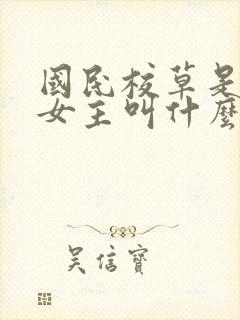 國民校草是
女主叫什麼
吳信寶